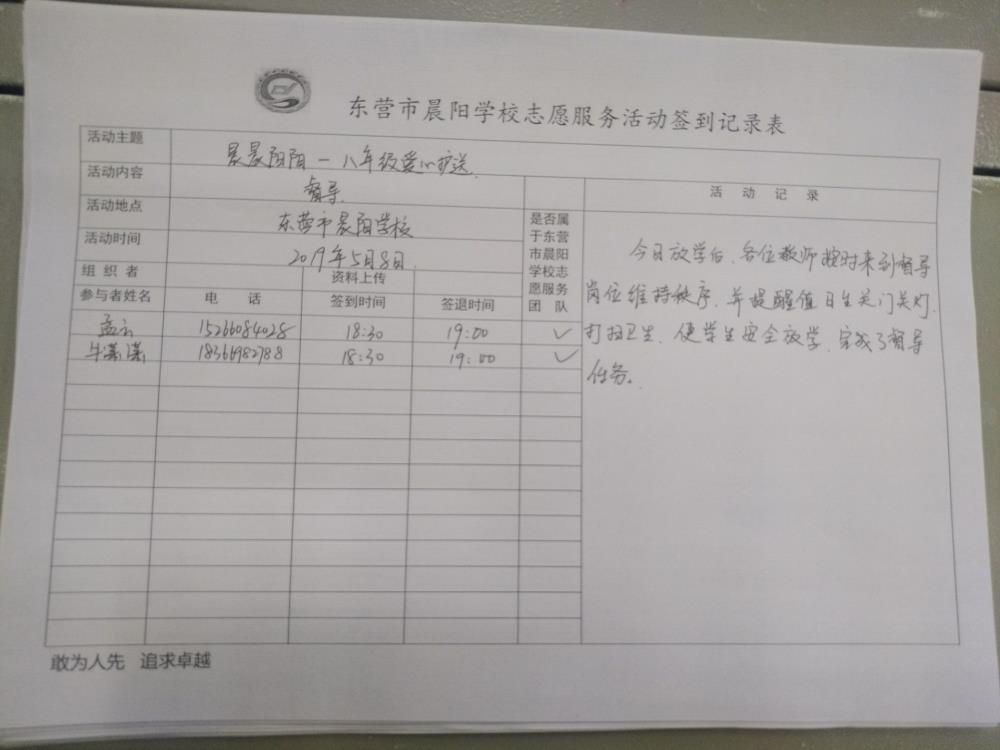 东营市晨阳学校志愿服务活动签到记录表
活动主题 晨晨阳阳一八年级爱心护送
活动内容 督导
活动地点 东营市晨阳学校
活动时间 2019年5月8日
组织者 资料上传
参与者姓名 电话 签到时间 签退时间
是否属
于东营
市晨阳
学校志
愿服务
团队
孟云 15266084028 18:30 19:00 ✓
牛潇潇 18366982788 18:30 19:00 ✓
活动记录
今日放学后、各位教师按时来到督导
岗位维持秩序、并提醒值日生关门关灯、
打扫卫生、使学生安全放学、完成了督导
任务。
敢为人先 追求卓越